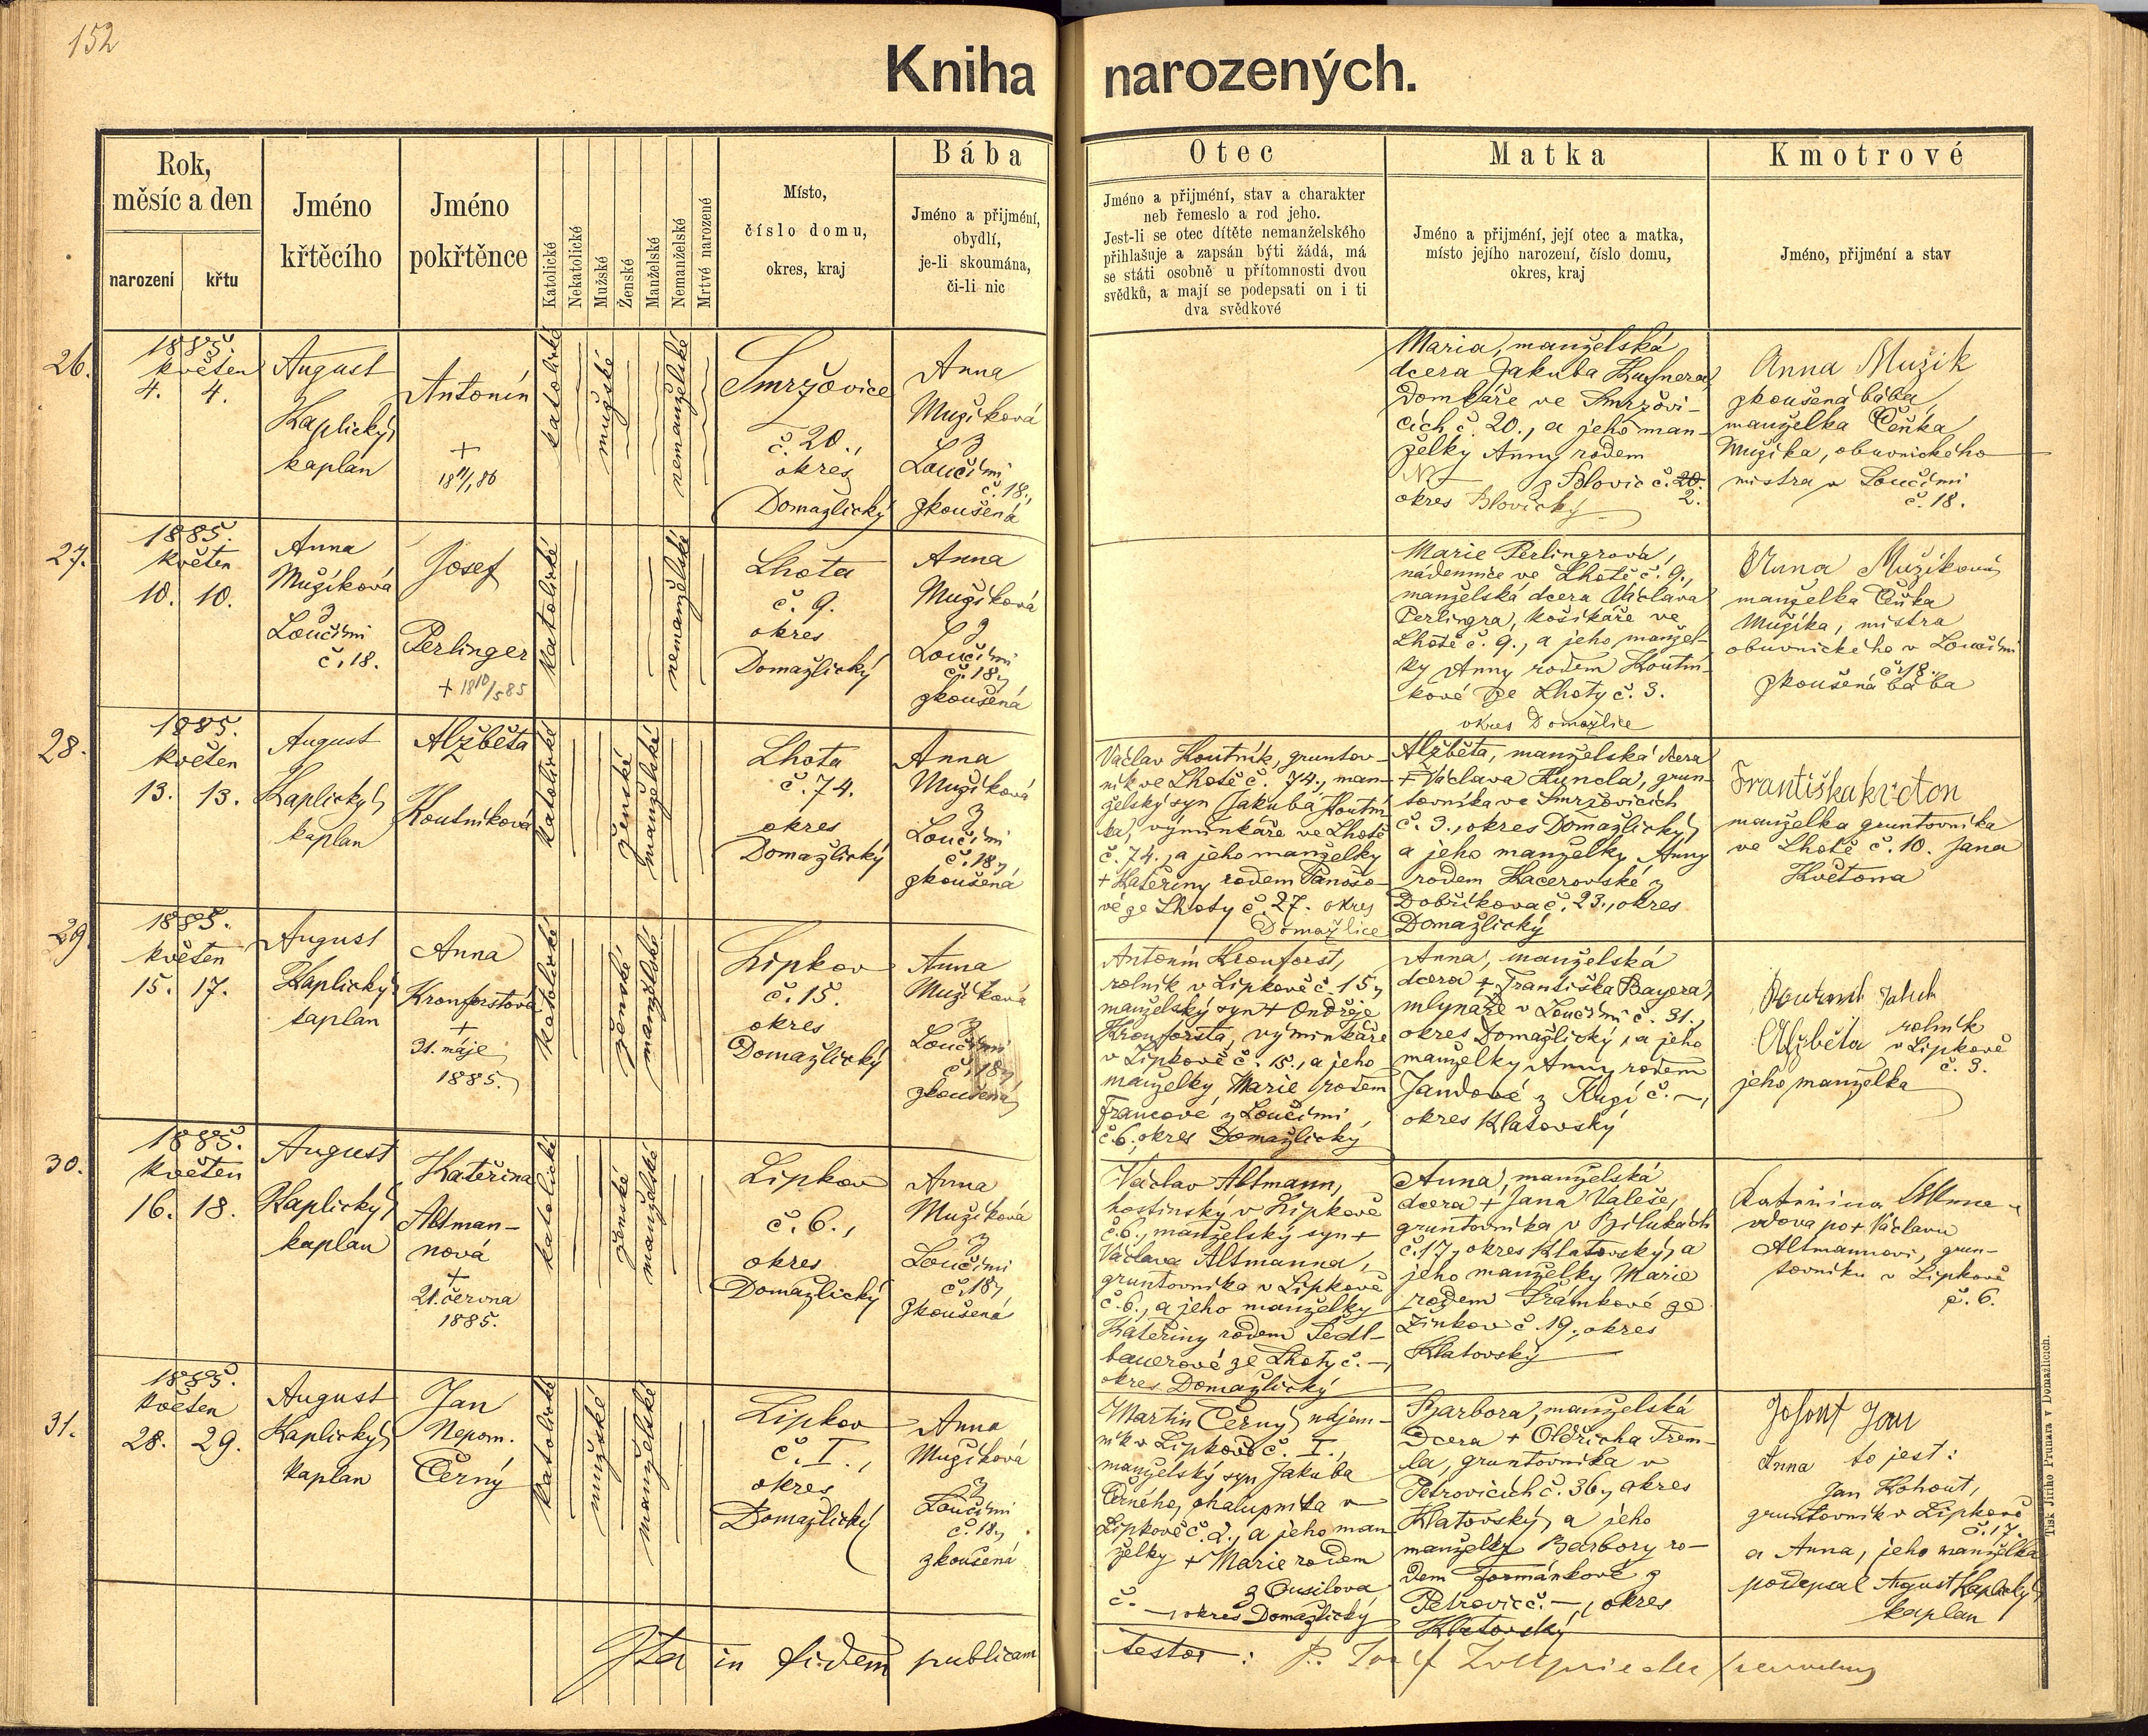 152
Kniha narozených.
Rok,
měsíc a den
narození
křtu
Jméno
křtěcího
Jméno
pokřtěnce
Katolické
Nekatolické
Mužské
Ženské
Manželské
Nemanželské
Mrtvé narozené
Místo,
číslo domu,
okres, kraj
Bába
Jméno a přijmění,
obydlí,
je-li skoumána,
či-li nic
Otec
Jméno a přijmění, stav a charakter
neb řemeslo a rod jeho.
Jest-li se otec dítěte nemanželského
přihlašuje a zapsán býti žádá, má
se státi osobně u přítomnosti dvou
svědků, a mají se podepsati on i ti
dva svědkové
Matka
Jméno a přijmění, její otec a matka,
místo jejího narození, číslo domu,
okres, kraj
Kmotrové
Jméno, přijmění a stav
26.
1885.
květen
4. 4.
August
Kaplický,
kaplan
Antonín
+
katolické
mužské
nemanželské
Smržovice
č. 20.,
okres
Domažlický
Anna
Mužíková
z
Loučimi
č. 18.,
zkoušená
Maria, manželská
dcera Jakuba
Domkáře ve Smržovi-
cích č. 20., a jeho man-
želky Anny rodem
N. z Blovic č. 20.
2.
okres Blovický
Anna Muzik
zkoušená bába,
manželka Čeňka
Mužíka, obuvnického
mistra v Loučimi
č. 18.
27.
1885.
květen
10. 10.
Anna
Mužíková
z
Loučimi
č. 18.
Josef
Perlinger
+ 18 10/5 85
katolické
nemanželské
Lhota
č. 9.
okres
Domažlický
Anna
Mužíková
z
Loučimi
č. 18,
zkoušená
Marie Perlingrová,
nádennice ve Lhotě č. 9.,
manželská dcera Václava
Perlingra, košíkáře ve
Lhotě č. 9., a jeho manžel-
ky Anny rodem Koutní-
kové ze Lhoty č. 3.
okres Domažlice
Anna Mužíková
manželka Čeňka
Mužíka, mistra
obuvnického v Loučimi
č. 18.
zkoušená bába
28.
1885.
květen
13. 13.
August
Kaplický,
kaplan
Alžběta
Koutníková
katolické
ženské
manželské
Lhota
č. 74.
okres
Domažlický
Anna
Mužíková
z
Loučimi
č. 18,
zkoušená
Václav Koutník, gruntov-
ník ve Lhotě č. 74., man-
želský syn Jakuba Koutní-
ka, výminkáře ve Lhotě
č. 74., a jeho manželky
+ Kateřiny rodem Panošo-
vé ze Lhoty č. 27. okres
Domažlice
Alžběta, manželská dcera
+ Václava Kuncla, grun-
tovníka ve Smržovicích
č. 3., okres Domažlický,
a jeho manželky Anny
rodem Kacerovské z
Dobříkova č. 23., okres
Domažlický
Františka kvéton
manželka gruntovníka
ve Lhotě č. 10. Jana
Květona
29.
1885.
květen
15. 17.
August
Kaplický,
kaplan
Anna
Kronforstová
+
31. máje
1885.
katolické
ženské
manželské
Lipkov
č. 15.
okres
Domažlický
Anna
Mužíková
z
Loučimi
č. 18,
zkoušená
Antonín Kronforst,
rolník v Lipkově č. 15,
manželský syn + Ondřeje
Kronforsta, výminkáře
v Lipkově č. 15., a jeho
manželky Marie rodem
Francové z Loučimi
č. 6., okres Domažlický
Anna, manželská
dcera + Františka Bayera,
mlynáře v Loučimi č. 31.,
okres Domažlický, a jeho
manželky Anny rodem
Jandové z č. –,
okres Klatovský
rolník
Alžběta v Lipkově
č. 3.
jeho manželka
30.
1885.
květen
16. 18.
August
Kaplický,
kaplan
Kateřina
Altman-
nová
+
21. června
1885.
katolické
ženské
manželské
Lipkov
č. 6.,
okres
Domažlický
Anna
Mužíková
z
Loučimi
č. 18,
zkoušená
Václav Altmann,
hostinský v Lipkově
č. 6., manželský syn +
Václava Altmanna,
gruntovníka v Lipkově
č. 6., a jeho manželky
Kateřiny rodem Sedl-
bauerové ze Lhoty č. –,
okres Domažlický
Anna, manželská
dcera + Jana Valeše,
gruntovníka v Běhukách
č. 17, okres Klatovský, a
jeho manželky Marie
rodem Šrámkové ze
Žinkov č. 19., okres
Klatovský
vdova po + Václavu
Altmannovi, grun-
tovníku v Lipkově
č. 6.
31.
1885.
květen
28. 29.
August
Kaplický,
kaplan
Jan
Nepom.
Černý
katolické
mužské
manželské
Lipkov
č. I.,
okres
Domažlický
Anna
Mužíková
z
Loučimi
č. 18,
zkoušená
Martin Černý, nájem-
ník v Lipkově č. I.,
manželský syn Jakuba
Černého, chalupníka v
Lipkově č. 2., a jeho man-
želky + Marie rodem
z Ousilova
č. –, okres Domažlický
Barbora, manželská
dcera + Oldřicha Trem-
la, gruntovníka v
Petrovicích č. 36, okres
Klatovský, a jeho
manželky Barbory ro-
dem Formánkové z
Petrovic č. –, okres
Klatovský
Anna to jest:
Jan Kohout,
gruntovník v Lipkově
č. 17.
a Anna, jeho manželka
podepsal August Kaplický,
kaplan
Ita in fidem publicam
testor: P. Josef
Tisk Jiřího Prunara v Domažlicích.